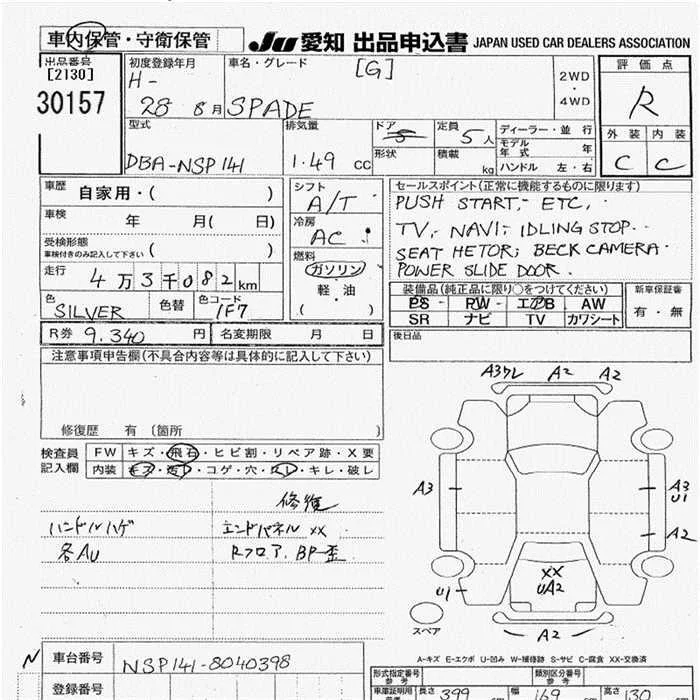 車内保管・守衛保管
JU 愛知 出品申込書 JAPAN USED CAR DEALERS ASSOCIATION
出品番号
[2130]
30157
初度登録年月
H-
28 8月
車名・グレード [G]
SPADE
2WD
・
4WD
評価点
R
外装 内装
C C
型式
DBA-NSP141
排気量
1.49 cc
ドア
5
形状
定員
5人
積載 kg
ディーラー・並行
モデル年式 年
ハンドル 左・右
車歴 自家用・( )
車検 年 月( 日)
受検形態
車検付きのみ記入して下さい ( )
走行 4万3千082km
色 SILVER 色替 色コード 1F7
シフト
A/T
冷房
AC
燃料
ガソリン
軽・油
( )
セールスポイント(正常に機能するものに限ります)
PUSH START, ETC,
TV, NAVI, IDLING STOP.
SEAT HETOR, BECK CAMERA
POWER SLIDE DOOR.
装備品(純正品に限り○をつけてください)
PS RW エアB AW
SR ナビ TV カワシート
新車保証書
有・無
R券 9.340円 名変期限 月 日
後日品
注意事項申告欄(不具合内容等は具体的に記入して下さい)
修復歴 有 〔箇所
検査員記入欄
FW キズ・飛石・ヒビ割・リペア跡・X要
内装 キズ・汚レ・コゲ・穴・スレ・キレ・破レ
修復
ハンドルハゲ エンドパネル XX
各AU Rフロア、BP歪
A3ワレ A2 A2
A3 A3
U1
A2
XX
UA2
U1
スペア
A2
A-キズ E-エクボ U-凹み W-補修跡 S-サビ C-腐食 XX-交換済
車台番号 NSP141-8040398
登録番号
形式指定番号
参考
類別区分番号
参考
車庫証明用 長さ 399 幅 169 高さ 130